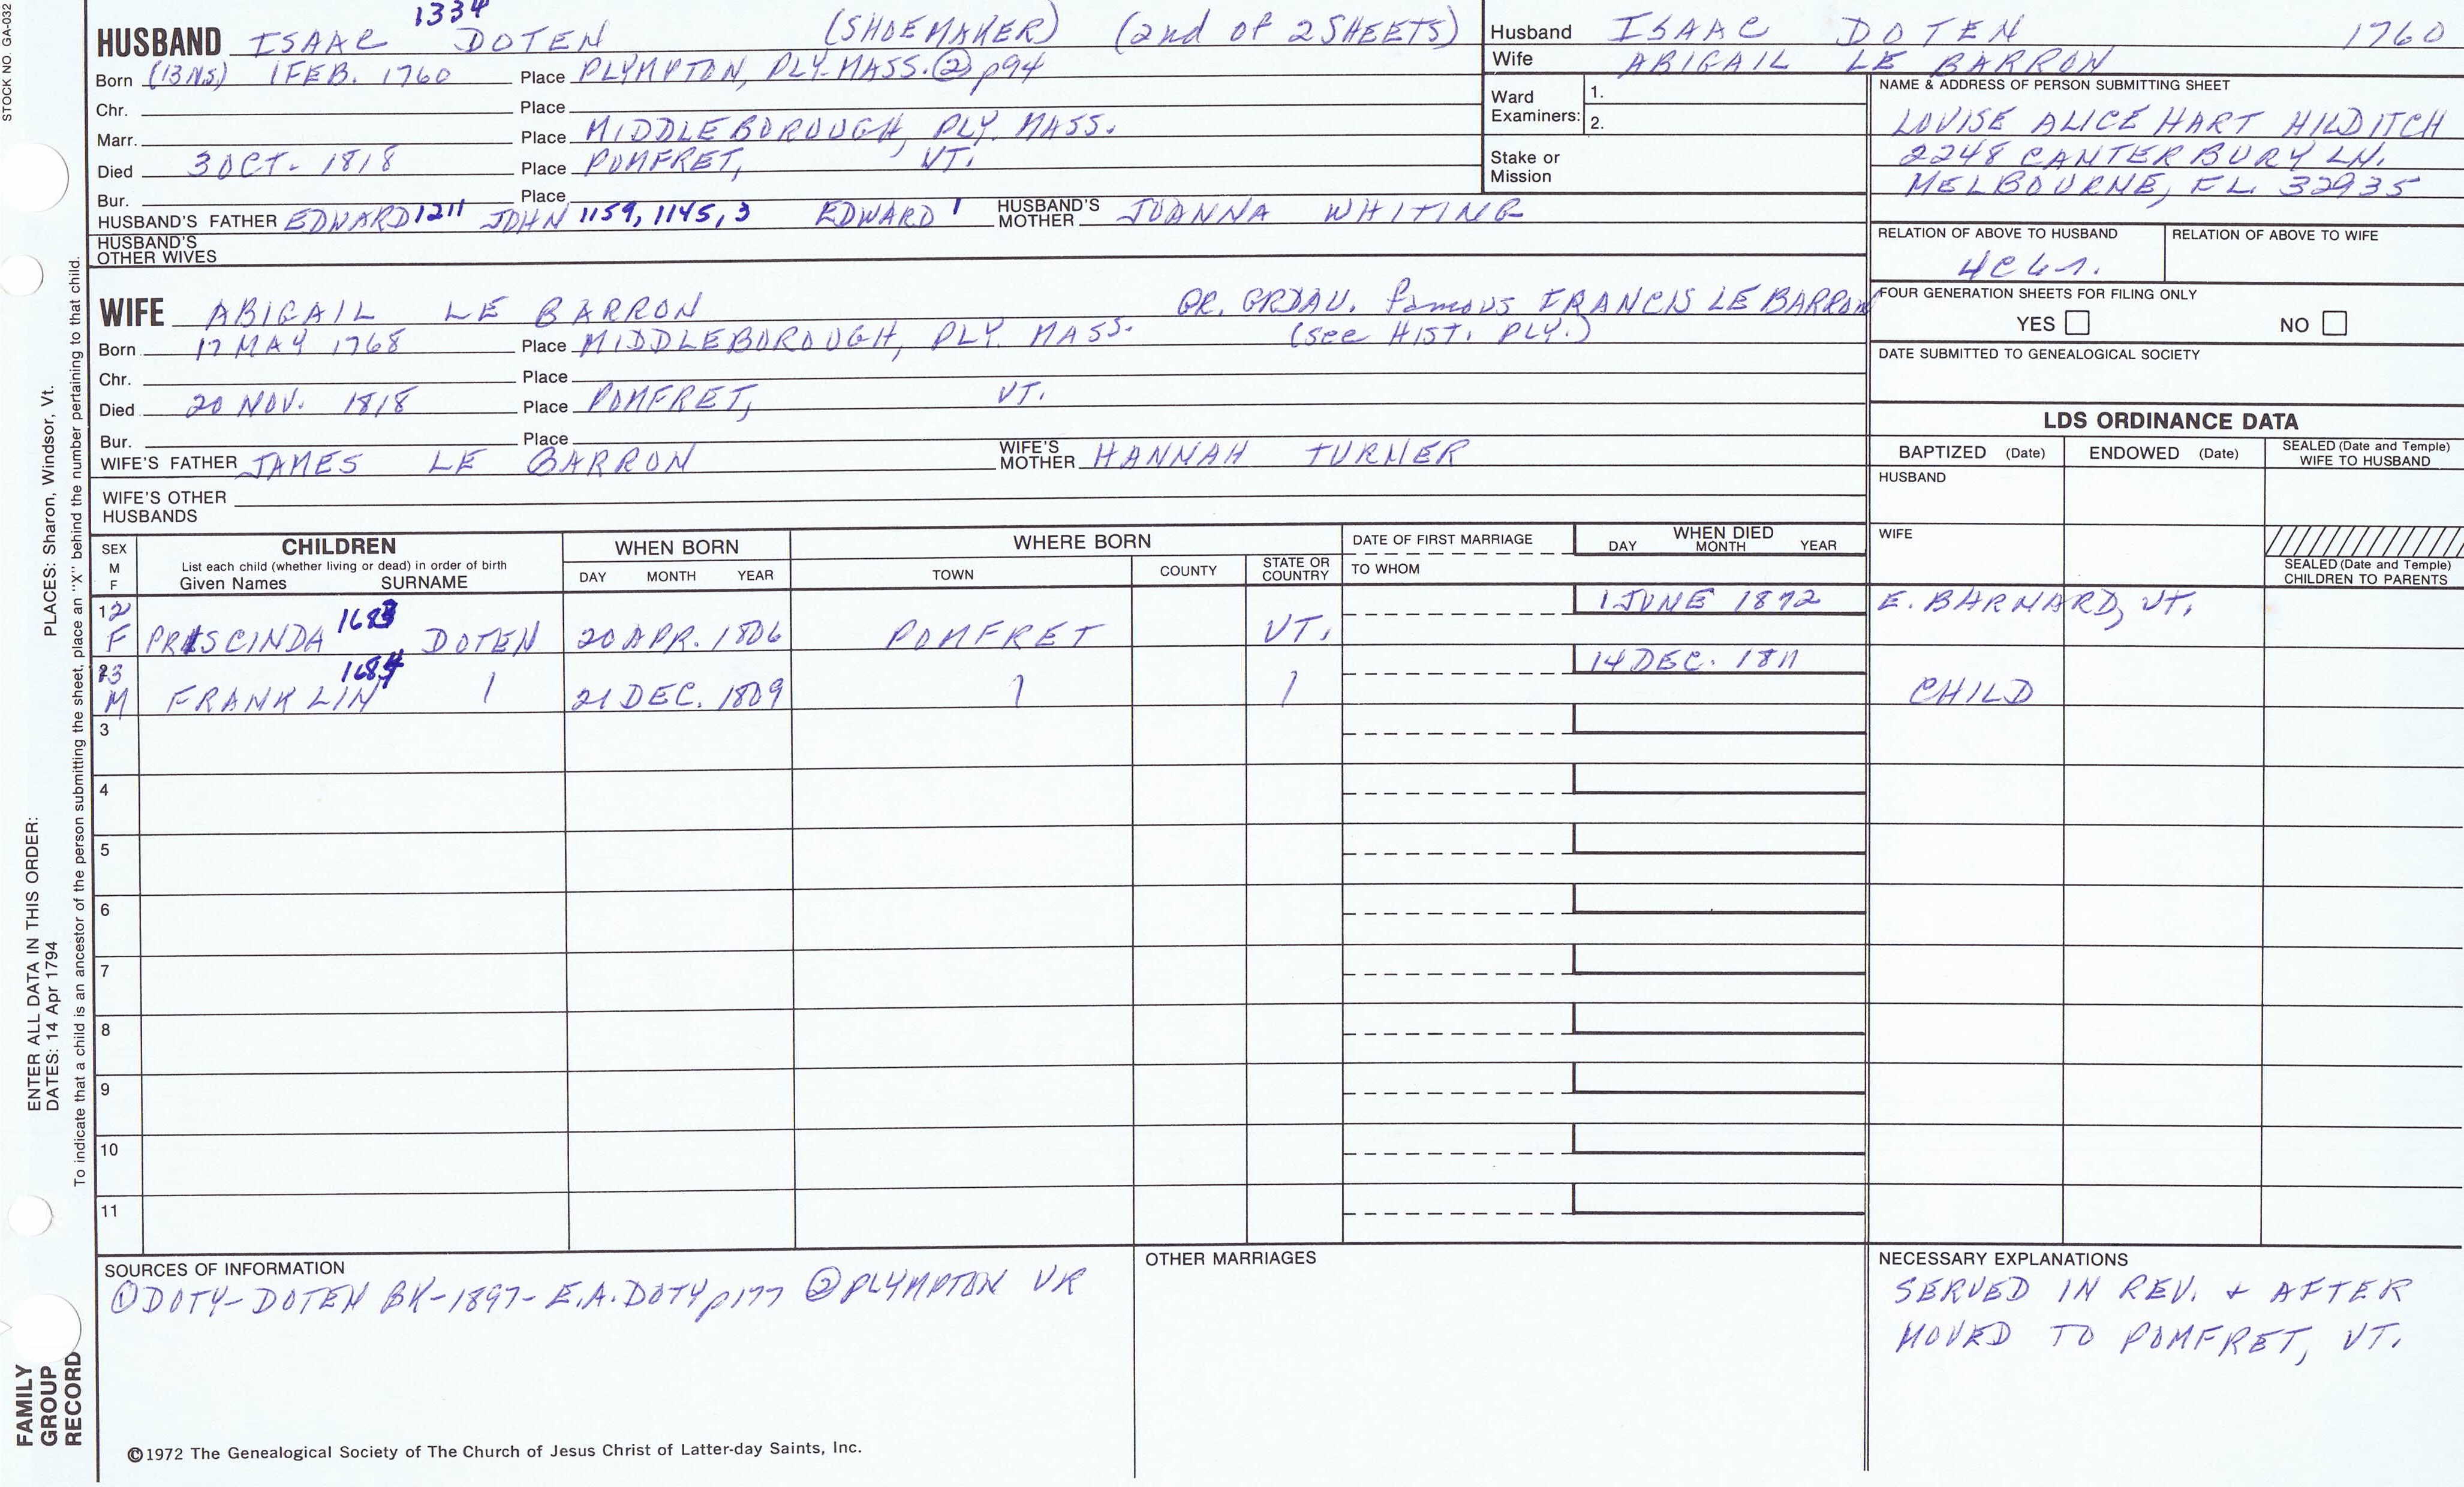 STOCK NO. GA-032
1334
HUSBAND ISAAC DOTEN (SHOEMAKER) (2nd OF 2 SHEETS)
Born (13 NS) 1 FEB. 1760 Place PLYMPTON, PLY-MASS. ② p94
Chr. Place
Marr. Place MIDDLEBOROUGH, PLY. MASS.
Died 3 OCT. 1818 Place POMFRET, VT.
Bur. Place
HUSBAND'S FATHER EDWARD 1211 JOHN 1159, 1145, 3 EDWARD 1 HUSBAND'S MOTHER JOANNA WHITING
HUSBAND'S OTHER WIVES
Husband ISAAC DOTEN 1760
Wife ABIGAIL LE BARRON
Ward Examiners: 1.
2.
Stake or Mission
NAME & ADDRESS OF PERSON SUBMITTING SHEET
LOUISE ALICE HART HILDITCH
2248 CANTERBURY LN.
MELBOURNE, FL. 32935
RELATION OF ABOVE TO HUSBAND RELATION OF ABOVE TO WIFE
FOUR GENERATION SHEETS FOR FILING ONLY
YES NO
DATE SUBMITTED TO GENEALOGICAL SOCIETY
WIFE ABIGAIL LE BARRON GR. GRDAU. famous FRANCIS LE BARRON
Born 17 MAY 1768 Place MIDDLEBOROUGH, PLY. MASS. (see HIST. PLY.)
Chr. Place
Died 20 NOV. 1818 Place POMFRET, VT.
Bur. Place
WIFE'S FATHER JAMES LE BARRON WIFE'S MOTHER HANNAH TURNER
WIFE'S OTHER HUSBANDS
LDS ORDINANCE DATA
BAPTIZED (Date) ENDOWED (Date) SEALED (Date and Temple) WIFE TO HUSBAND
HUSBAND
WIFE
SEALED (Date and Temple) CHILDREN TO PARENTS
SEX M F
CHILDREN
List each child (whether living or dead) in order of birth
Given Names SURNAME
WHEN BORN
DAY MONTH YEAR
WHERE BORN
TOWN COUNTY STATE OR COUNTRY
DATE OF FIRST MARRIAGE
TO WHOM
WHEN DIED
DAY MONTH YEAR
12 F PRISCINDA 1683 DOTEN 20 APR. 1806 POMFRET VT. 1 JUNE 1872 E. BARNARD, VT.
13 M FRANKLIN 1684 1 21 DEC. 1809 1 1 14 DEC. 1811 CHILD
3
4
5
6
7
8
9
10
11
SOURCES OF INFORMATION
① DOTY-DOTEN BK-1897-E.A.DOTY p177 ② PLYMPTON VR
OTHER MARRIAGES
NECESSARY EXPLANATIONS
SERVED IN REV. + AFTER
MOVED TO POMFRET, VT.
©1972 The Genealogical Society of The Church of Jesus Christ of Latter-day Saints, Inc.
FAMILY GROUP RECORD
ENTER ALL DATA IN THIS ORDER:
DATES: 14 Apr 1794 PLACES: Sharon, Windsor, Vt.
To indicate that a child is an ancestor of the person submitting the sheet, place an "X" behind the number pertaining to that child.